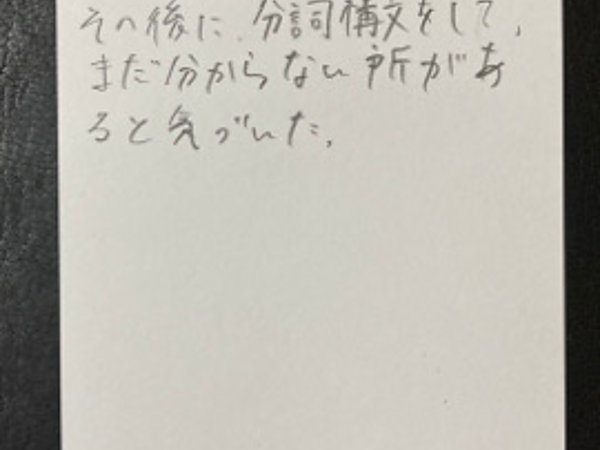 その後に、分詞構文をして、
まだ分からない所があ
ると気づいた。